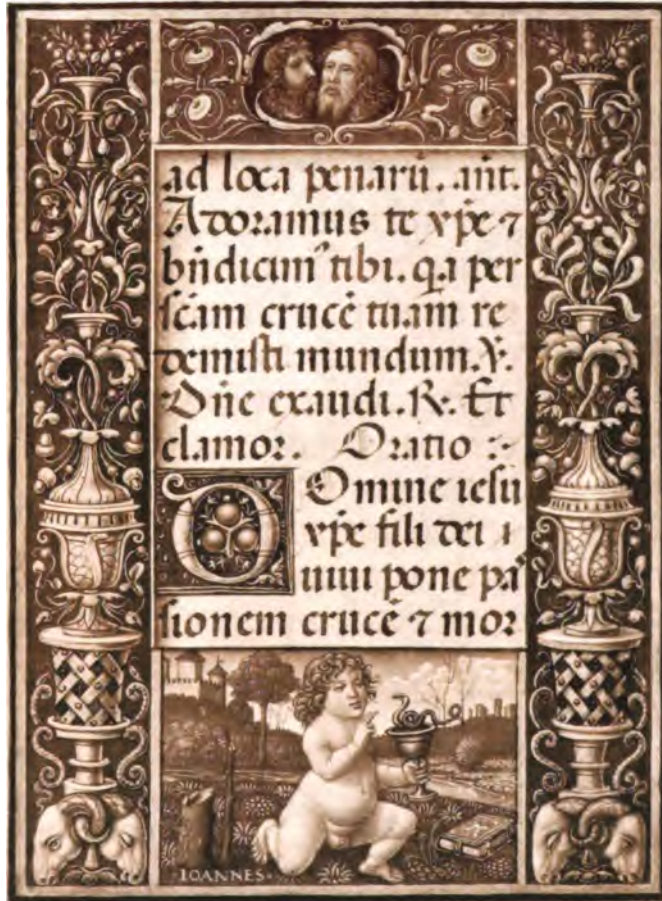 ad loca penarū. añt.
Adoramus te xp̄e ⁊
bn̄dicim⁹ tibi. q.a per
sc̄am crucē tuam re
demisti mundum. ℣.
Dn̄e exaudi. ℟. Et
clamor. Oratio :
Domine iesu
xp̄e fili dei
uiui pone pa
sionem crucē ⁊ mor
IOANNES